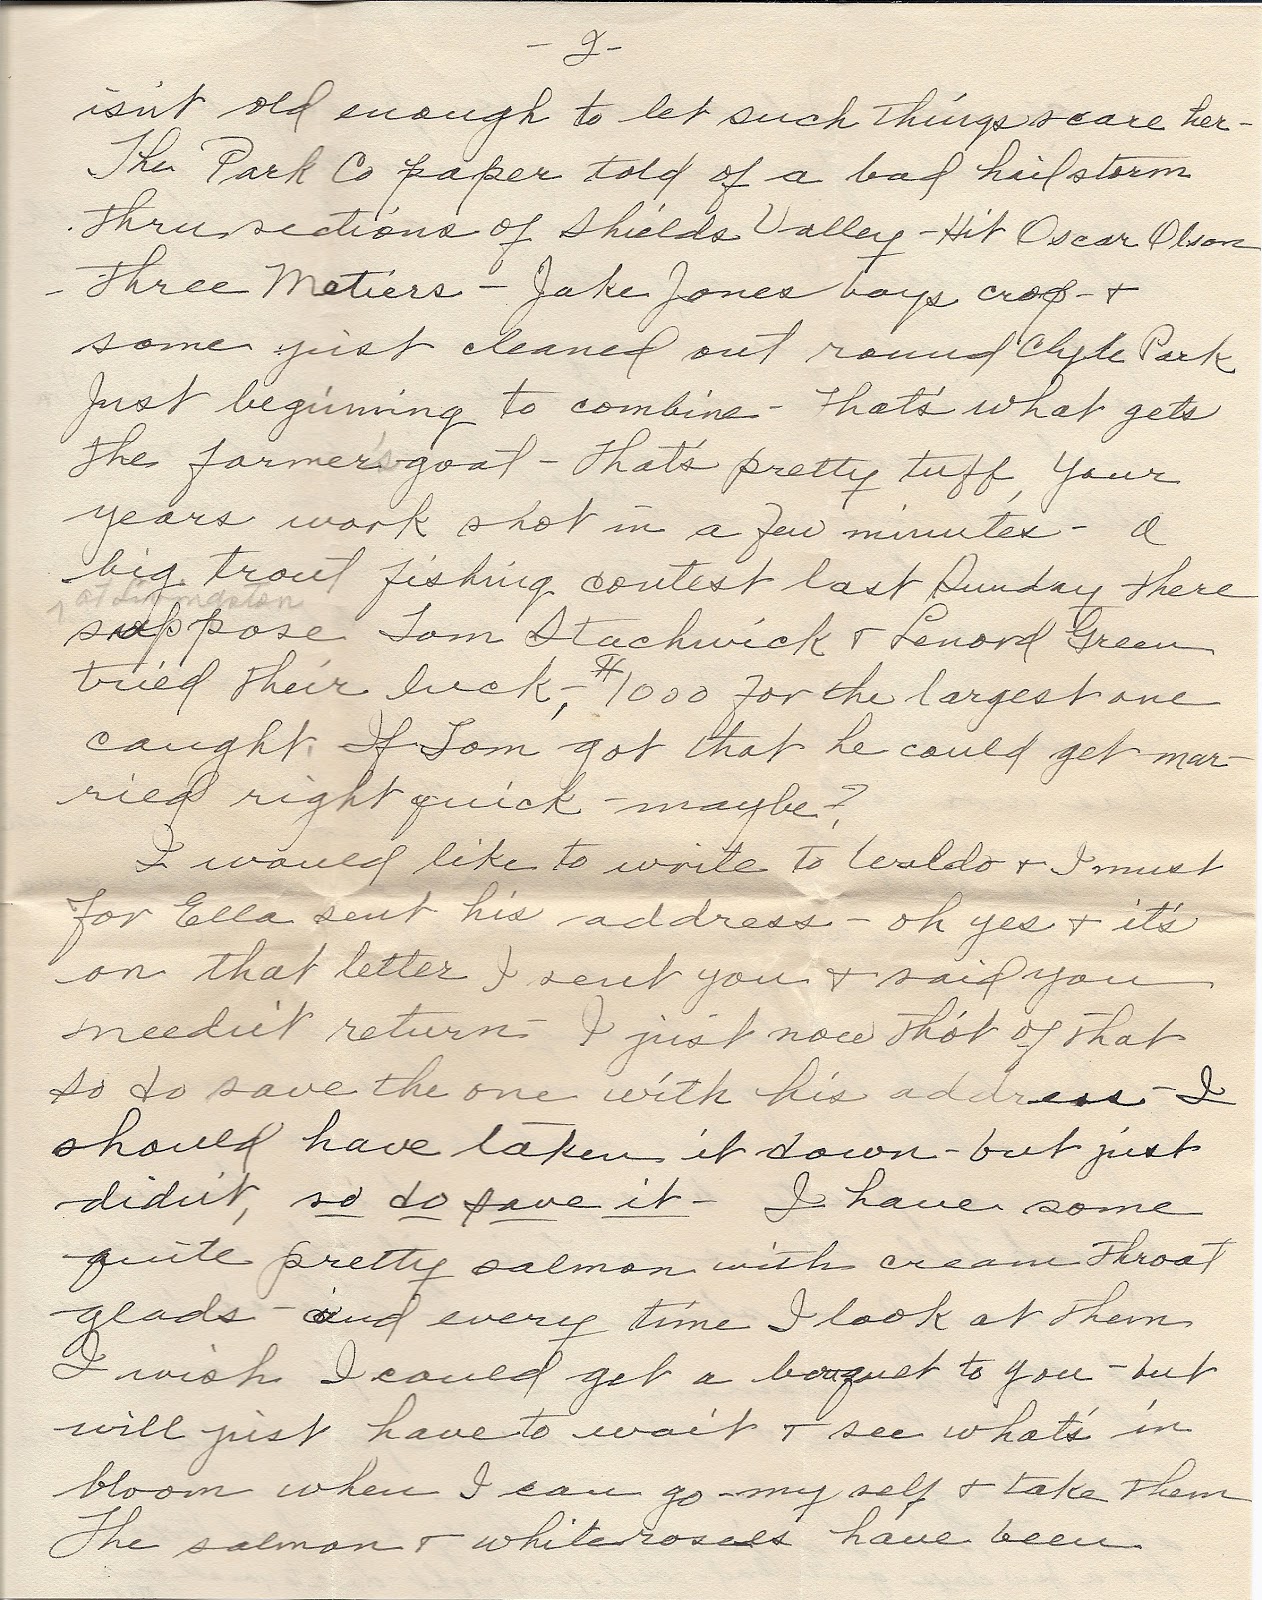 - 2 -
isn't old enough to let such things scare her-
The Park Co paper told of a bad hailstorm
thru sections of Shields Valley - Hit Oscar Olson
- three Metiers - Jake Jones boys crop - +
some just cleaned out round Clyde Park
Just beginning to combine - that's what gets
the farmer's goat - that's pretty tuff, your
years work shot in a few minutes - a
big trout fishing contest last Sunday there
at Livingston
suppose Tom Stachwick + Lenord Green
tried their luck, - $1000 for the largest one
caught. If Tom got that he could get mar-
ried right quick - maybe?
I would like to write to Waldo + I must
for Ella sent his address - oh yes + it's
on that letter I sent you + said you
needn't return - I just now tho't of that
so do save the one with his address - I
should have taken it down - but just
didn't, so do save it - I have some
quite pretty salmon with cream throat
glads - and every time I look at them
I wish I could get a bouquet to you - but
will just have to wait + see what's in
bloom when I can go my self + take them
The salmon + white roses have been